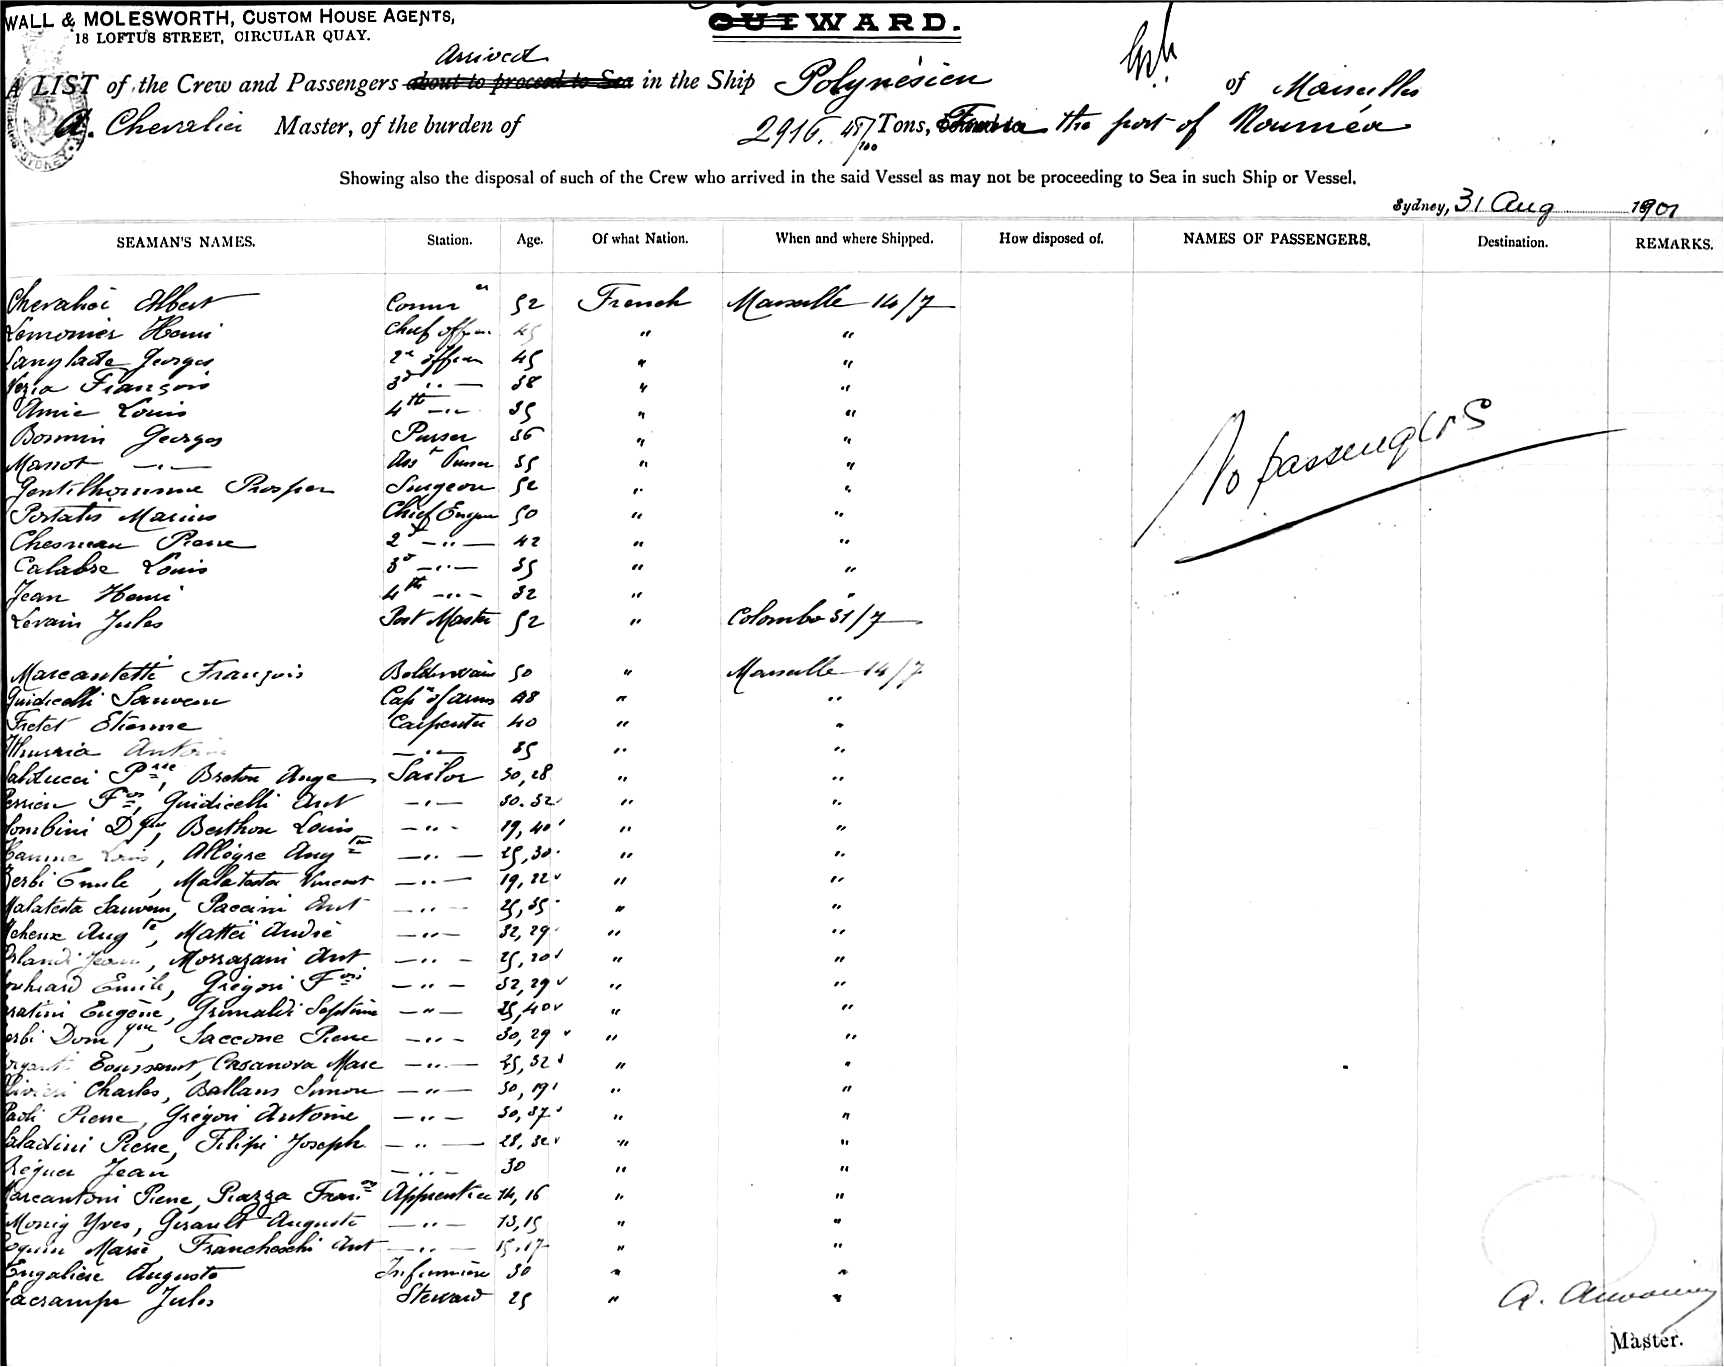 WALL & MOLESWORTH, CUSTOM HOUSE AGENTS,
18 LOFTUS STREET, CIRCULAR QUAY.
OUTWARD.
Arrived
A LIST of the Crew and Passengers about to proceed to Sea in the Ship Polynésien of Marseilles
A. Chevalier Master, of the burden of 2916. 48/100 Tons, From the port of Nouméa
Showing also the disposal of such of the Crew who arrived in the said Vessel as may not be proceeding to Sea in such Ship or Vessel.
Sydney, 31 Aug 1901
SEAMAN'S NAMES. Station. Age. Of what Nation. When and where Shipped. How disposed of. NAMES OF PASSENGERS. Destination. REMARKS.
Chevalier Albert Comm er 52 French Marseille 14/7
Lemonier Henri Chief officer 45 " "
Langlade Georges 2d officer 45 " "
François 3d " 38 " "
Amic Louis 4th " 35 " "
Bonnin Georges Purser 36 " "
Manot " Asst Purser 35 " "
Gentilhomme Prosper Surgeon 52 " "
Portatis Marius Chief Engr 50 " "
Chesneau Pierre 2d " 42 " "
Calabre Louis 3d " 35 " "
Jean Henri 4th " 32 " "
Levain Jules Post Master 52 " Colombo 31/7
No passengers
Marcantetti François 50 " Marseille 14/7
Guidicelli Sauveur Capn of arms 48 " "
Fretet Etienne Carpenter 40 " "
Antoine " 35 " "
Balducci Pre, Breton Ange Sailor 30,28 " "
Perrier Fois, Guidicelli Ant " 30.32 " "
Colombini Dque, Berthon Louis " 19,40 " "
Louis, Allègre Augte " 25,30 " "
Zerbi Emile, Malatesta Vincent " 19,22 " "
Malatesta Sauveur, Paccini Ant " 25,35 " "
Augte, Matteï André " 32,29 " "
Orlandi Jean, Morrazani Ant " 25,20 " "
Emile, Grégori Fois " 32,29 " "
Eugène, Grimaldi Septime " 25,40 " "
Zerbi Domque, Saccone Pierre " 30,29 " "
Toussaint, Casanova Marc " 25,32 " "
Olivieri Charles, Ballans Simon " 30,19 " "
Paoli Pierre, Grégori Antoine " 30,37 " "
Paladini Pierre, Filipi Joseph " 28,32 " "
Jean " 30 " "
Marcantoni Pierre, Piazza Franc Apprentice 14,16 " "
Monig Yves, Girault Auguste " 13,15 " "
Marie, Francheschi Ant " 15,17 " "
Engalière Auguste Infirmière 30 " "
Lacrampe Jules Steward 25 " "
Master.